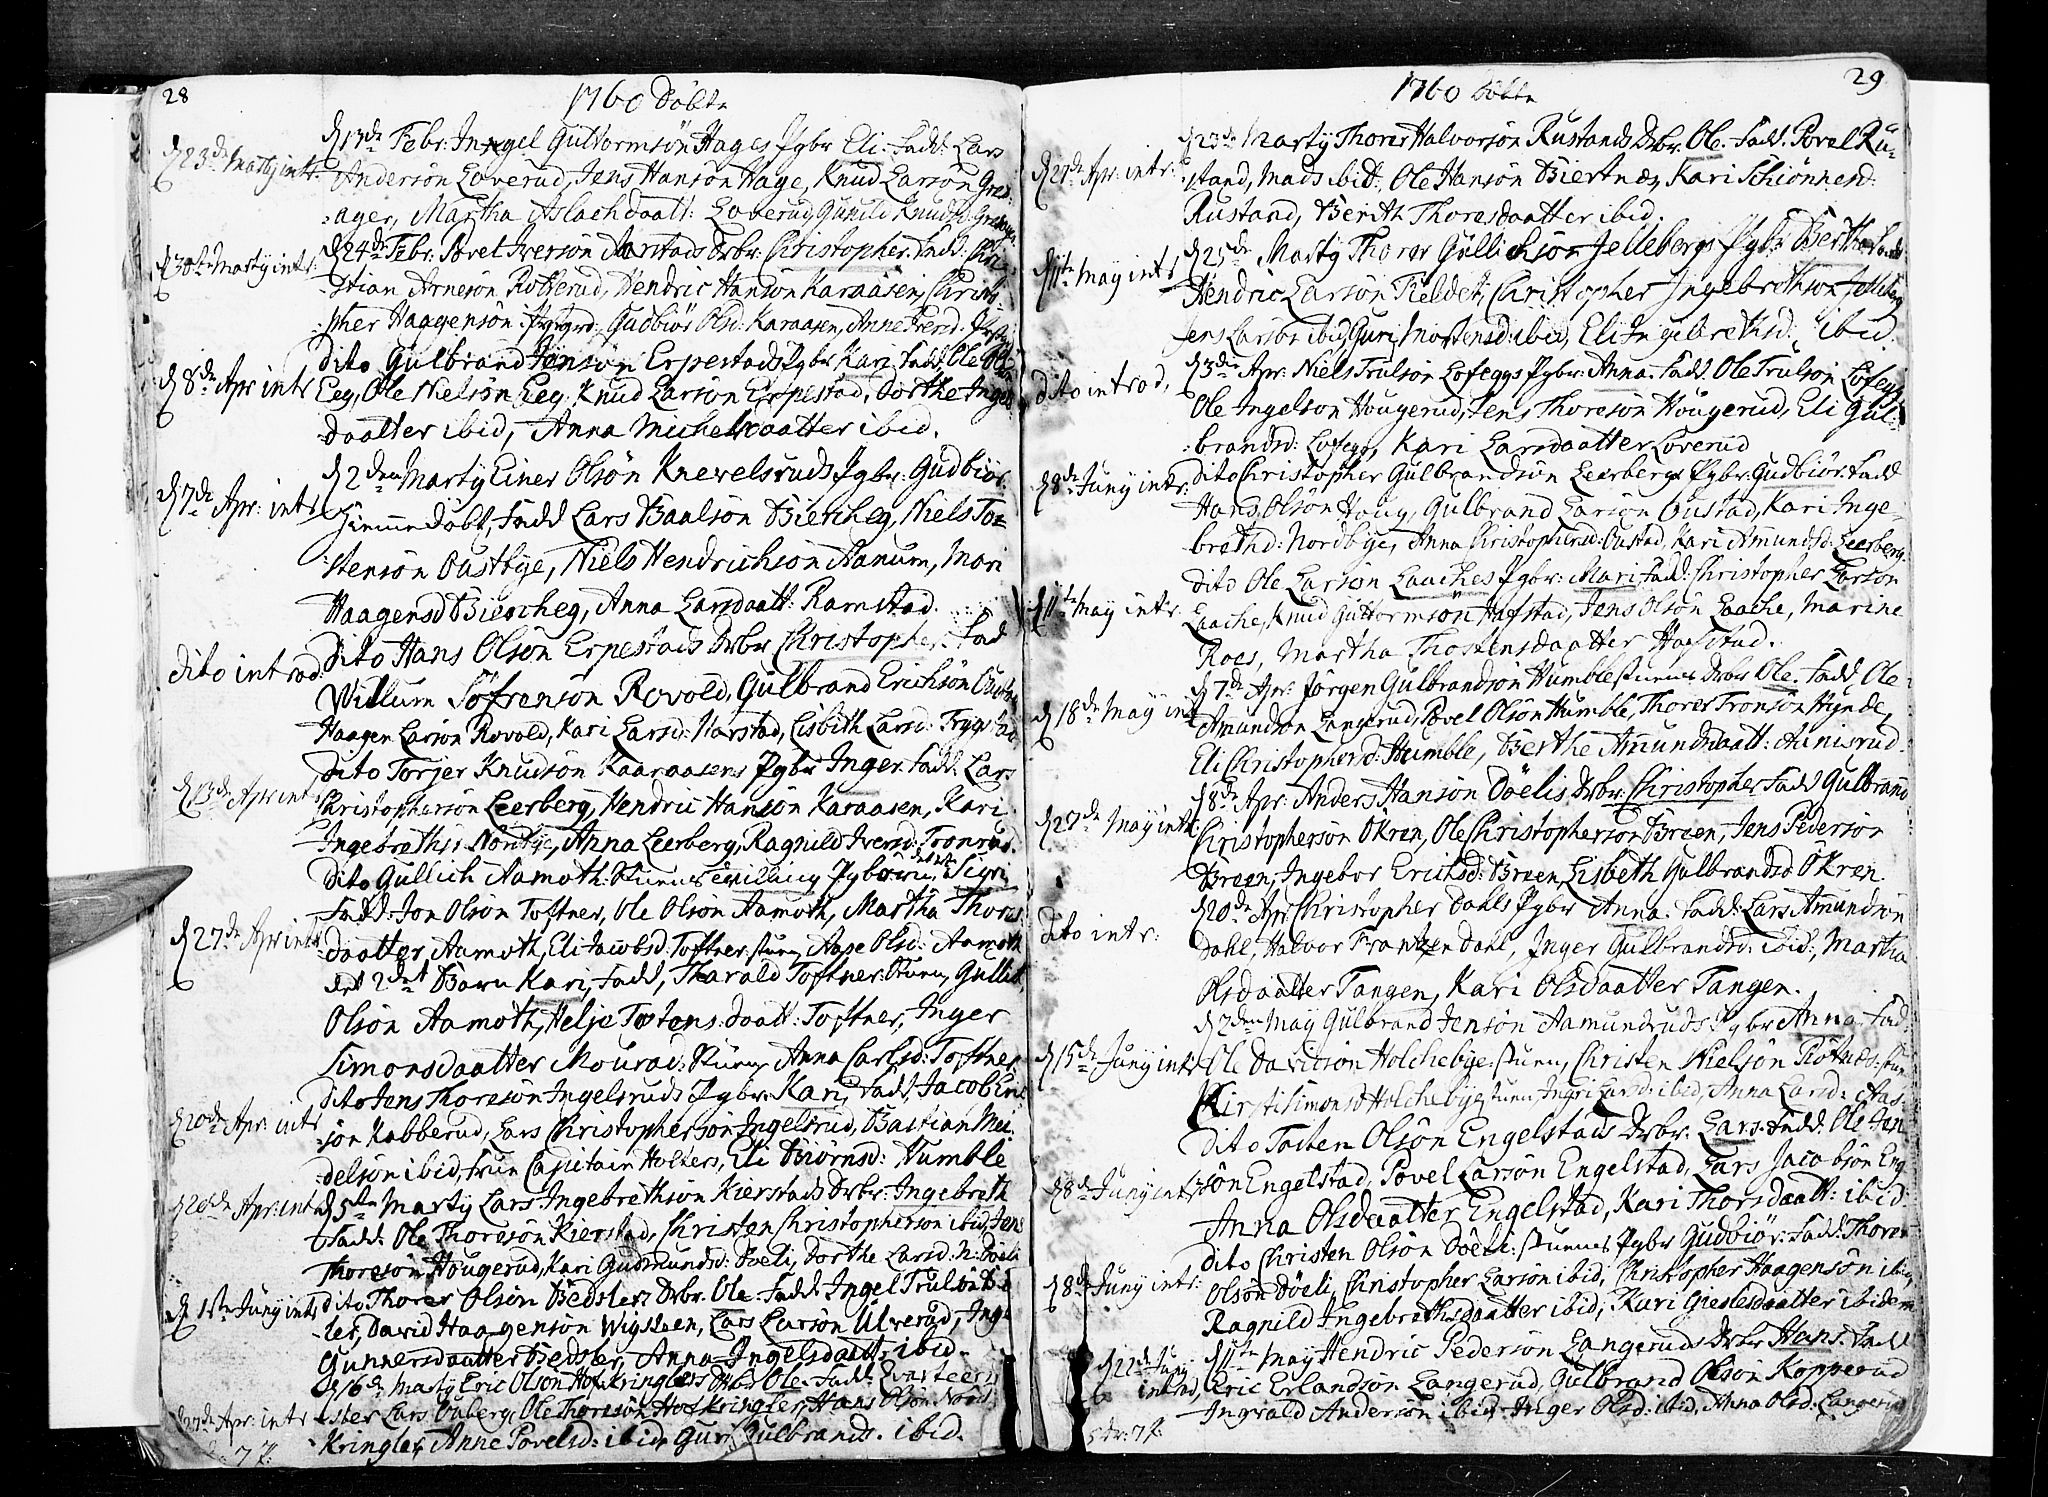 28
1760 Döbte
d 23de Marty intr:
d 17de Febr: Ingel Guttormsön Hages Pgbr Eli. Fadd: Lars
Andersön Loverud, Jens Hansön Hage, Knud Larsön Gres-
ager, Martha Aslachdaatt: Loverud, Gunild Knudsd: Gresager
d 30te Marty intr:
d 24de Febr: Povel Iversön Aarstads Drbr: Christopher. Fadd: Chri-
stian Arnesön Rotterud, Hendric Hansön Karaasen, Christo-
pher Haagensön, Gudbiör Olsd: Karaasen, Anne Iversd:
d 8de Apr intr
dito Gulbrand Jensön Erpestads Pgbr Kari, Fadd, Ole
Eeg, Ole Nielsön Eeg, Knud Larsön Erpestad, Dorthe Ingels
daatter ibid, Anna Michelsdaatter ibid.
d 7de Apr: intr
d 2den Marty Einer Olsön Knevelsruds Pgbr: Gudbiör.
Hiemmedöbt, Fadd Lars Baalsön Biercheg, Niels To-
stensön Oustbye, Niels Hendrichsön Aanum, Mari
Haagensd Biercheg, Anna Larsdaatt: Ramstad.
dito introd:
dito Hans Olsön Erpestads Drbr Christopher. Fad
Villum Söfrensön Rovold, Gulbrand Erichsön
Haagen Larsön Rovold, Kari Larsd: Narstad, Lisbith Larsd:
d 13de Apr intr
dito Torjer Knudsön Kaaraasens Pgbr Inger. Fadd. Lars
Christophersön Leerberg, Hendric Hansön Karaasen, Kari
Ingebrethsd: Nordbye, Anna Leerberg, Ragnild Iversd: Tronrud.
dito Gullich Aamoth: Stuens Pgbörn, Sigri
d 27de Apr intr
Fadd: Jon Olsön Toftner, Ole Olsön Aamoth, Martha Thores
daatter Aamoth, Eli Jacobsd: Toftner stuen, Aase Olsd: Aamoth
det 2det Barn Kari, Fadd, Tharald Toftner: Stuen, Gullik
Olsön Aamoth, Helje Tostens: daatt: Toftner, Inger
Simonsdaatter Mourud: Stuen, Anna Carlsd: Toftner
d 20de Apr: intr
dito Jens Thoresön Ingelsruds Pgbr: Kari, Fadd, Jacob
sön Kabberud, Lars Christophersön Ingelsrud, Bastian Mei-
delsön ibid, Frue Capitain Holters, Eli Biörnsd: Humble
d 20de Apr: intr
d 5te Marty Lars Ingebrethsön Kierstads Drbr: Ingebreth
Fadd: Ole Thoresön Kierstad, Christen Christophersön ibid, Jens
Thoresön Hougerud, Kari Gudmundsd: Döeli, Dorthe Larsd: N: Döeli
d 1ste Juny intr
dito Thorer Olsön Bedsler, Drbr. Ole. Fadd Ingel Trulsön
ler, David Haagensön Wigsteen, Lars Larsön Ulverud, Inge
Gunnersdaatter Bedsler, Anna Ingelsdaatt: ibid.
d 16de Marty Eric Olsön Hofkringlers Drbr Ole. Fadd:
d 27de Apr: intr
ster Lars Onberg, Ole Thoresön Hofkringler, Hans Olsön Nordre
Kringler, Anne Povelsd: ibid, Guri Gulbrandsd. ibid.
77:
29
1760 Döbte
d 27de Apr: intr:
d 23de Marty Thorer Halvorsön Rustands Drbr. Ole. Fadd. Povel Ru-
stand, Mads ibid:, Ole Hansön Biertnæs, Kari Schiönnesd:
Rustand, Berith Thoresdaatter ibid.
d 11te May intr
d 25de Marty Thorer Gullichsön Jelleberg Pgbr Bertha Fadd
Hendric Larsön Fieldet, Christopher Ingebrethsön Jelleberg
Jens Larsön ibid, Guri Mortensd: ibid, Eli Ingebrethsd: ibid.
dito introd,
d 3die Apr: Niels Trulsön Lofeggs Pgbr: Anna. Fadd. Ole Trulsön Lofegg,
Ole Ingelsön Hougerud, Jens Thoresön Hougerud, Eli Gul-
brandsd: Lofegg, Kari Larsdaatter Loverud
d 8de Juny intr:
dito Christopher Gulbrandsön Leerbergs Pgbr: Gudbiör. Fadd
Hans Olsön Houg, Gulbrand Larsön Oustad, Kari Inge-
brethd: Nordbye, Anna Christophersd: Oustad, Kari Amundsd: Leerberg.
d 11te May intr.
dito Ole Larsön Laaches Pgbr: Mari, Fadd: Christopher Larsön
Laache, Knud Guttormsön Hafstad, Jens Olsön Laache, Marine
Roes, Martha Thostensdaatter Hafstad.
d 18de May intr
d 7de Apr: Jörgen Gulbrandsön Humblestuenes Drbr Ole. Fadd, Ole
Amundsön Langerud, Povel Olsön Humble, Thorer Tronsön Hynde,
Eli Christophersd: Humble, Berthe Amundsdaatt: Aunisrud.
d 27de May intr:
d 8de Apr: Anders Hansön Döelis Drbr: Christopher Fadd Gulbrand
Christophersön Ökren, Ole Christophersön Breen, Jens Pedersön
Breen, Ingebor Erichsd: Breen, Lisbeth Gulbrandsd Ökren.
dito intr:
d 20de Apr Christopher Dahls Pgbr Anna. Fadd: Lars Amundsön
Dahl, Halvor Frantzen Dahl, Inger Gulbrandsd: ibid:, Martha
Olsdaatter Tangen, Kari Olsdaatter Tangen.
d 15de Juny intr
d 2den May Gulbrand Jensön Aamundruds Pgbr Anna. Fad:
Ole Davidsön Holchebye: stuen, Christen Nielsön Plötnæs: stuen
Kirsti Simonsd Holchebye stuen, Ingri Larsd: ibid, Anna Larsd: Aas-
d 8de Juny intr
dito Tosten Olsön Engelstads Drbr: Lars. Fadd. Ole Jen
sön Engelstad, Povel Larsön Engelstad, Lars Jacobsön Eng
Anna Olsdaatter Engelstad, Kari Thorsdaatt: ibid:
d 8de Juny intr:
dito Christen Olsön Döeli: stuenes Pgbr Gudbiör. Fadd. Thorer
Olsön Döeli, Christopher Larsön ibid, Christopher Haagensön ibid,
Ragnild Ingebrethsdaatter ibid, Kari Gieslesdaatter ibidem
d 22de Juny
introd,
d 11te May Hendric Pedersön Langeruds Drbr Hans. Fadd
Eric Erlandsön Langerud, Gulbrand Olsön Kopperud
Ingvald Andersön ibid, Inger Olsd: ibid, Anna Olsd: Langerud
77: